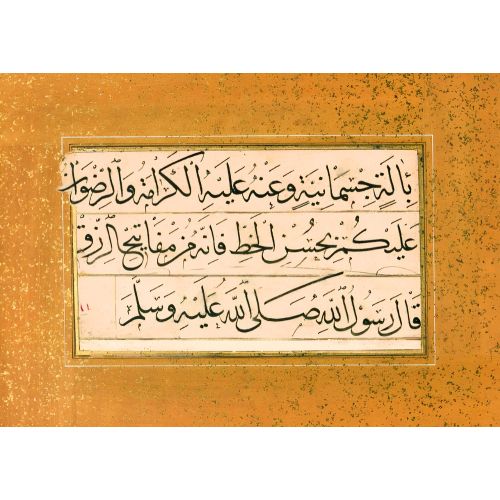 بالة جسمانية وعنه عليه الكرامة والرضوان
عليكم بحسن الخط فانه من مفاتيح الرزق
قال رسول الله صلى الله عليه وسلم
١١